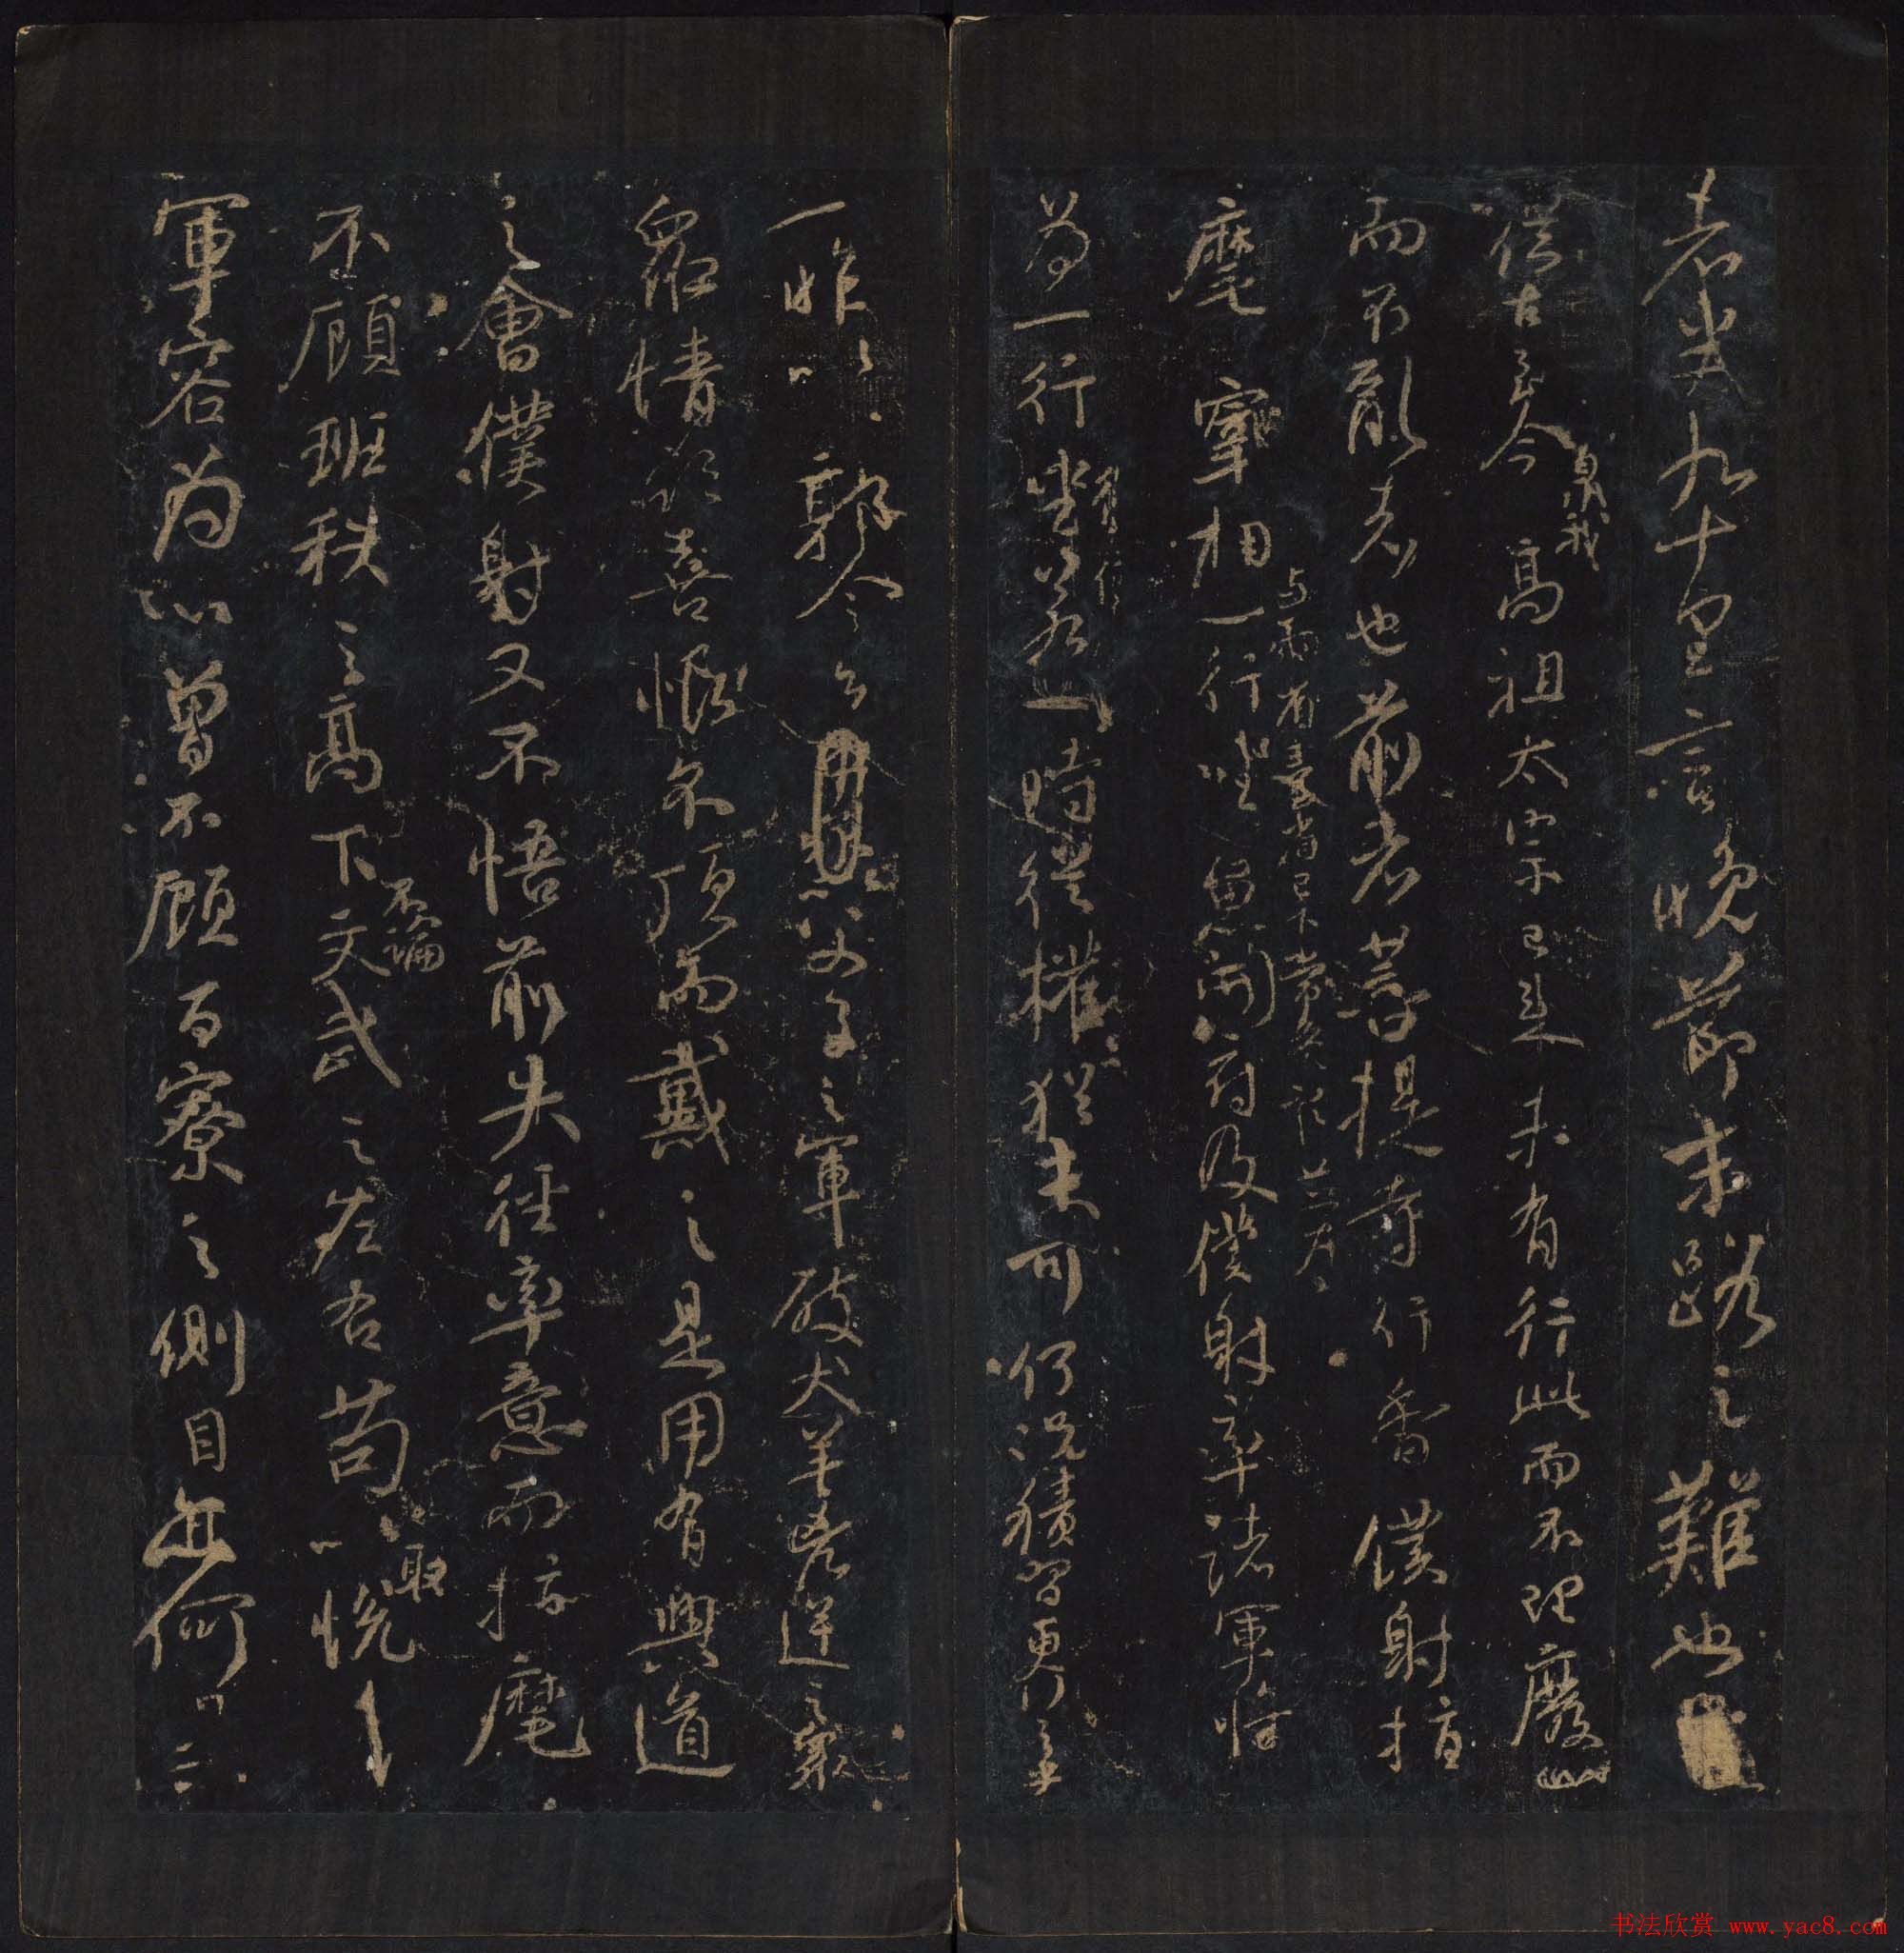 者半九十里言晚節末路之難也
從古至今暨我高祖太宗已來未有行此而不理廢
而不亂者也前者菩提寺行香僕射指
麾宰相与兩省臺省已下常參官並為一行坐魚開府及僕射率諸軍將
為一行坐若一時從權猶未可何況積習更行之乎
一昨以郭令公父子之軍破犬羊凶逆之眾
眾情欣喜恨不頂而戴之是用有興道
之會僕射又不悟前失徑率意而指麾
不顧班秩之高下不論文武之左右苟以取悅
軍容為心曾不顧百寮之側目何
书法欣赏 www.yac8.com